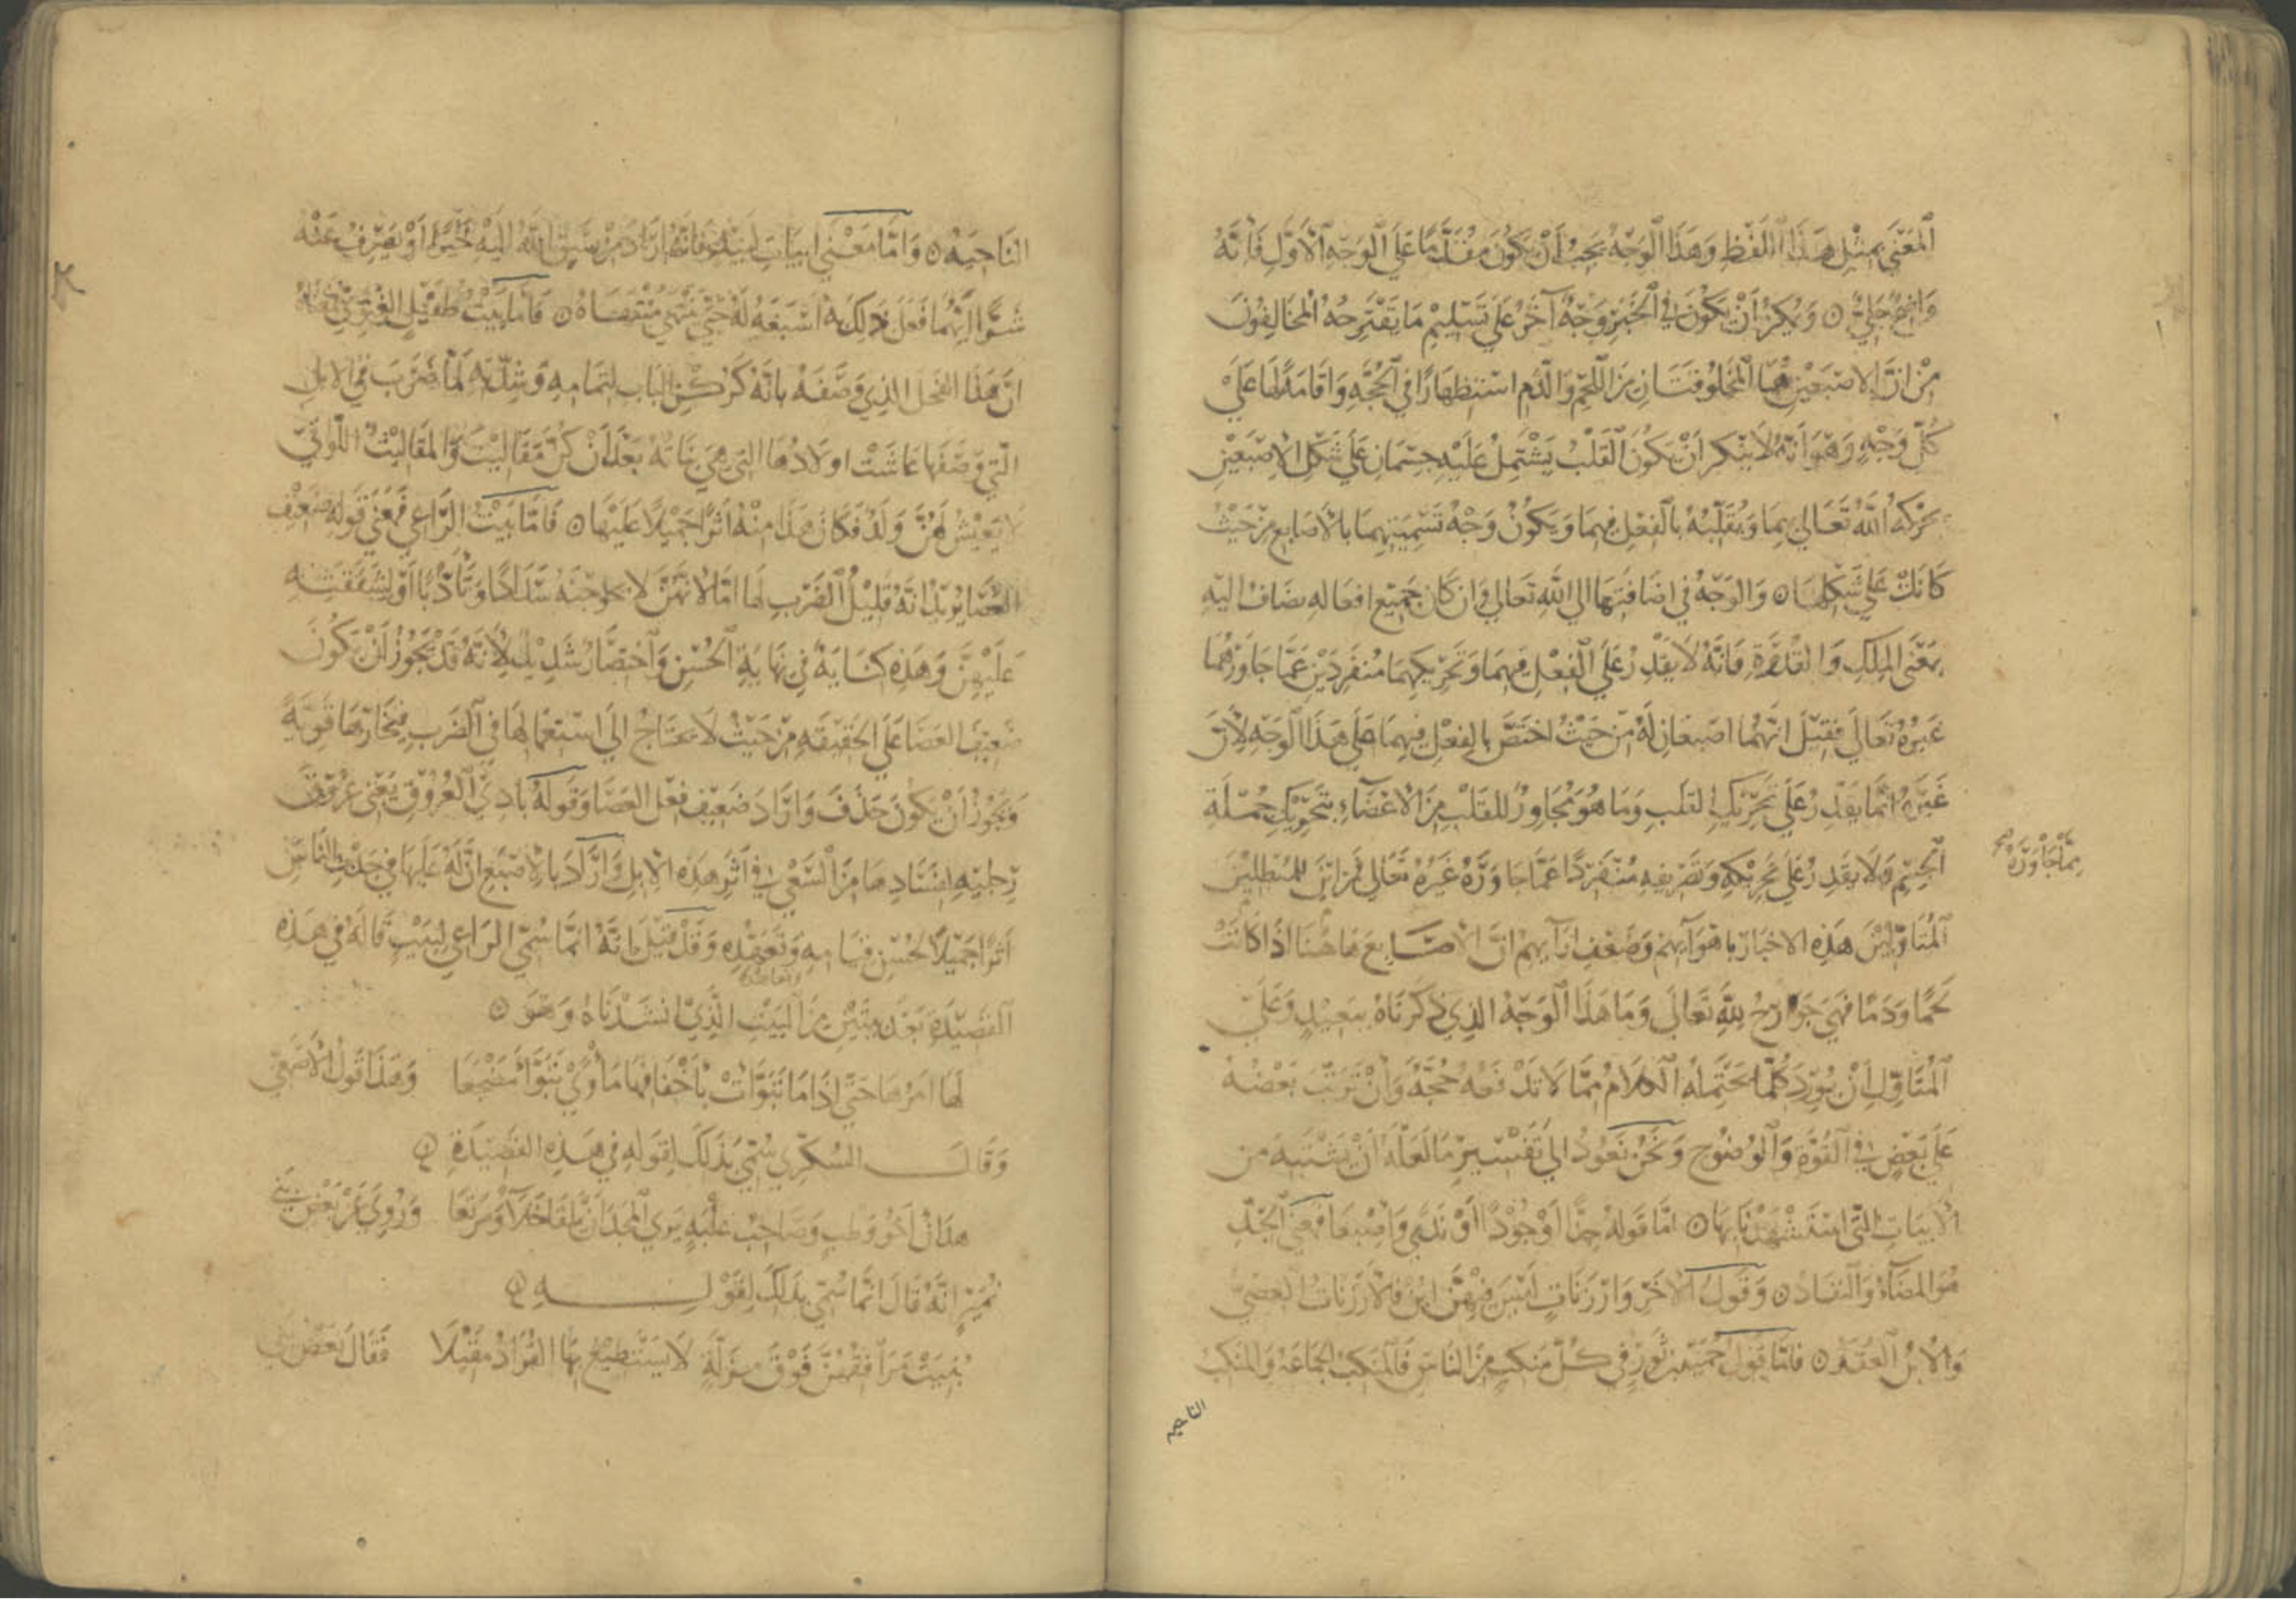 المَعْنَى بمثْلِ هَذَا اللَّفْظِ وَهَذَا الوَجْهُ يَجِبُ أَنْ يَكُونَ مُقَدَّمًا عَلَى الوَجْهِ الأَوَّلِ فَإِنَّهُ
وَاضِحٌ جَلِيٌّ ۝ وَيُمْكِنُ أَنْ يَكُونَ فِي الخَبَرِ وَجْهٌ آخَرُ عَلَى تَسْلِيمِ مَا يَقْتَرِحُهُ المُخَالِفُونَ
مِنْ أَنَّ الإصْبَعَيْنِ هُمَا المَخْلُوقَتَانِ مِنَ اللَّحْمِ وَالدَّمِ اسْتِظْهَارًا فِي الحُجَّةِ وَإقَامَةً لَهَا عَلَى
كُلِّ وَجْهٍ وَهُوَ أَنَّهُ لَا يُنْكَرُ أَنْ يَكُونَ القَلْبُ يَشْتَمِلُ عَلَيْهِ جِسْمَانِ عَلَى شَكْلِ الإصْبَعَيْنِ
يُحَرِّكُهُ اللَّهُ تَعَالَى بِهِمَا وَيُقَلِّبُهُ بِالفِعْلِ فِيهِمَا وَيَكُونُ وَجْهُ تَسْمِيَتِهِمَا بِالأَصَابِعِ مِنْ حَيْثُ
كَانَتْ عَلَى شَكْلِهَا ۝ وَالوَجْهُ فِي إضَافَتِهَا إلى اللَّهِ تَعَالَى وَإن كَانَ جَمِيْعُ أفعَالِهِ يضَافُ اليْهِ
بِمَعْنَى المِلْكِ وَالقُدْرَةِ فَإنَّهُ لَا يَقْدِرُ عَلَى الفِعْلِ فِيهِمَا وَتَحْرِيكِهِمَا مُنْفَرِدَيْنِ عَمَّا جَاوَرَهُمَا
غَيْرُهُ تَعَالَى فَقِيْلَ إنَّهُمَا اصْبعَانِ لَهُ مِنْ حَيْثُ اخْتَصَّ بِالفِعْلِ فِيهِمَا عَلَى هَذَا الوَجْهِ لِأَنَّ
غَيْرَهُ إنَّمَا يَقْدِرُ عَلَى تَحْرِيْكِ القَلبِ وَمَا هُوَ مُجَاوِرٌ لِلْقَلْبِ مِنَ الأَعْضَاءِ بِتَحْرِيْكِ جُمْلَةِ
الجِسْمِ وَلَا يَقْدِرُ عَلَى تَحْرِيْكِهِ وَتَصْرِيفِهِ مُنْفَرِدًا عَمَّا جَاوَرَهُ غَيْرُهُ تَعَالَى فَمِنْ أيْنَ لِلْمُبْطِلِيْنَ
مِمَّا جَاوَرَهُ
المُتَأَوِّلِيْنَ هَذِهِ الاخْبَارَ بِأهْوَآئِهِمْ وَضَعْفِ آرَآئِهِمْ أنَّ الأصَابِعَ هَاهُنَا إذَا كَانَتْ
لَحْمًا وَدَمًا فَهِيَ جَوَارِحُ للهِ تَعَالَى وَمَا هَذَا الوَجْهُ الذِي ذَكَرْنَاهُ بِبَعِيْدٍ وَعَلَى
المُتَأَوِّلِ أنْ يُوْرِدَ كُلَّمَا يَحْتَمِلُهُ الكَلَامُ مِمَّا لَا تَدْفَعُهُ حُجَّةٌ وَإنْ تَرَتَّبَ بَعْضُهُ
عَلَى بَعْضٍ فِي القُوَّةِ وَالوُضُوْحِ وَنَحْنُ نَعُوْدُ إلَى تَفْسِيرِ مَا لَعَلَّهُ أنْ يَشْتَبِهَ مِن
الأبْيَاتِ الَّتِي اسْتَشْهَدْنَا بِهَا ۝ امَّا قَوْلُهُ حِدًّا أوْ جُوْدًا أوْ نَدًى وَإصْبعًا فمعنى الحدّ
هُوَ المَضَآءُ وَالنَّفَادُ ۝ وَقَوْلُ الآخَرِ وَأرْزَنَاتٍ لَيْسَ فِيهِنَّ ابْنٌ فَالأرْزَنَاتُ العصيّ
وَالأبْنُ العُقَدُ ۝ فَأمَّا قَوْلُ حُمَيْدِ بن ثَوْرٍ فِي كُلِّ مَنْكِبٍ مِنَ النَّاسِ فَالمَنْكِبُ الجمَاعَةُ وَالمَنْكِبُ
الناحية
النَّاحِيَةُ ۝ وَامَّا مَعْنَى ابيَاتِ لَبِيْدٍ فَإنَّهُ أرَادَ مَنْ يَسُقِ اللَّهُ إلَيْهِ خَيْرًا أوْ يَصْرِفْ عَنْهُ
شَرًّا أيَّهُمَا فَعَلَ ذَلِكَ بِهِ أسْبَغَهُ لَهُ حَتَّى يَنْتَهِيَ مُنْتَهَاهُ ۝ فَأمَّا بَيْتُ طُفَيْلٍ الغَنَوِيِّ فَمَعْنَاهُ
أنَّ هَذَا الفَحْلَ الذِي وَصَفَهُ بِأنَّهُ كَرُكْنِ البَابِ لِتَمَامِهِ وَشِدَّتِهِ لَمَّا ضَرَبَ فِي الإبِلِ
الَّتِي وَصَفَهَا عَاشَتْ اولَادُهَا التِي هِيَ بَنَاتُهُ بَعْدَ أنْ كُنَّ مَقَالِيْتَ وَالمَقَالِيْتُ اللَّوَاتِي
لَا يَعِيْشُ لَهُنَّ وَلَدٌ فَكَانَ هَذَا مِنْهُ أثَرًا جَمِيْلًا عَلَيْهَا ۝ فَأمَّا بَيْتُ الرَّاعِي فَمَعْنَى قَوْلِهِ ضَعِيْف
العَصَا يُرِيْدُ انَّهُ قَلِيْلُ الضَّرْبِ لَهَا امَّا لأنَّهُنَّ لَا يُحْوِجْنَهُ سَدَادًا وَتَأدُّبًا أوْ لِشَفَقَتِهِ
عَلَيْهِنَّ وَهَذِهِ كِنَايَةٌ فِي نِهَايَةِ الحُسْنِ وَاخْتِصَارٌ شَدِيْدٌ لِأنَّهُ قَدْ يَجُوْزُ أنْ يَكُونَ
ضَعِيْفَ العَصَا عَلَى الحَقِيْقَةِ مِنْ حَيْثُ لَا يَحْتَاجُ إلَى اسْتِعْمَالِهَا فِي الضَّرْبِ فَيَخْتَارُهَا قَوِيَّةً
وَيَجُوْزُ أنْ يَكُوْنَ حَذَفَ وَأرَادَ ضَعِيْف فِعْلِ العَصَا وَقَوْلُهُ بَادِي العُرُوْقِ يَعْنِي عُرُوْقَ
رِجْلَيْهِ لِفَسَادِهَا مِنَ السَّعْيِ فِي أثَرِ هَذِهِ الإبِلِ وَأرَادَ بِالإصْبَعِ أنَّ لَهُ عَلَيْهَا فِي جَدْبِ النَّاسِ
أثَرًا جَمِيْلًا لِحُسْنِ قِيَامِهِ وَتَعَهُّدِهِ وَقَدْ قِيْلَ بِأنَّهُ انَّمَا سُمِّيَ الرَّاعِي لِبَيْتٍ قَالَهُ فِي هَذِهِ
القَصِيْدَةِ بَعْدَ بَيْتَيْنِ مِنَ البَيْتِ الَّذِي انشَدْنَاهُ وَهُوَ ۝
لَهَا امْرُهَا حَتَّى إذَا مَا تَبَوَّأَتْ بِأخْفَافِهَا مَأوًى تَبَوَّأ مَضْجَعَا وَهَذَا قَوْلُ الأصْمَعِيّ
وَقَالَ السُّكَّرِي سُمِّيَ بِذَلِكَ لِقَوْلِهِ فِي هَذِهِ القَصِيْدَةِ ۝
هدَانُ أخُو وَطبٍ وَصَاحِبُ عُلْبَةٍ يَرَى المَجْدَ أنْ يَلْقَى خَلَآءً وَمَرْتَعَا وَرُوِيَ عَنْ بَعْضِ بَنِي
نُمَيْرٍ أنَّهُ قَالَ انَّمَا سُمِّيَ بِذَلِكَ لِقَوْلِهِ ۝
بُنِيَتْ مَرَافِقُهُنَّ فَوْقَ مَزَلَّةٍ لَا يَسْتَطِيْعُ بِهَا القُرَادُ مَقِيْلَا فَقَالَ بَعْضُ بني